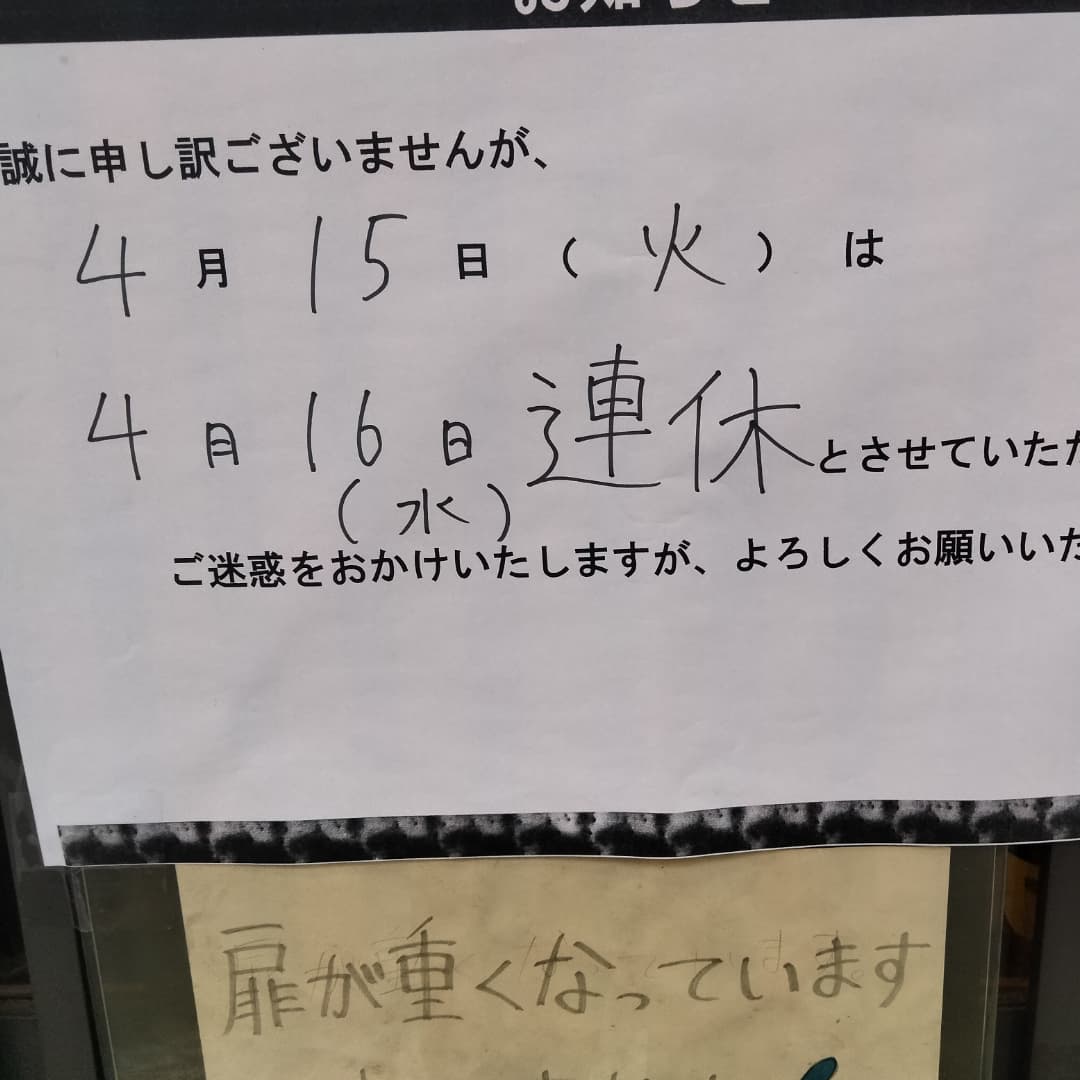 お知らせ
誠に申し訳ございませんが、
4月15日(火)は
4月16日連休とさせていただ
(水)
ご迷惑をおかけいたしますが、よろしくお願いいた
扉が重くなっています